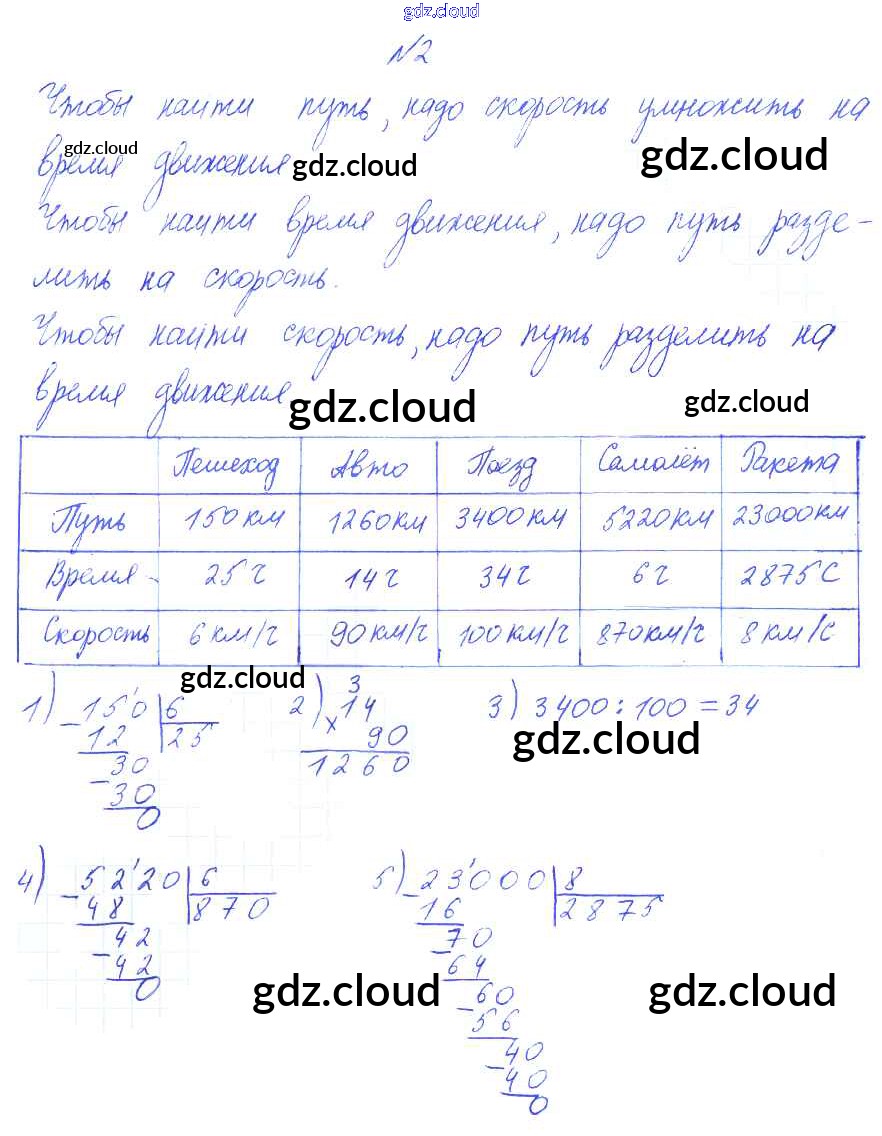 gdz.cloud
№2
Чтобы найти путь, надо скорость умножить на
gdz.cloud
время движения gdz.cloud gdz.cloud
Чтобы найти время движения, надо путь разде-
лить на скорость.
Чтобы найти скорость, надо путь разделить на
время движения gdz.cloud gdz.cloud
Пешеход Авто Поезд Самолёт Ракета
Путь 150 км 1260 км 3400 км 5220 км 23000 км
Время 25 ч 14 ч 34 ч 6 ч 2875 с
Скорость 6 км/ч 90 км/ч 100 км/ч 870 км/ч 8 км/с
gdz.cloud
1) - 150 | 6
12 25
- 30
30
0
2) 3
x 14
90
1260
3) 3400 : 100 = 34
gdz.cloud
4) - 5220 | 6
48 870
- 42
42
0
5) - 23000 | 8
16 2875
- 70
64
- 60
56
- 40
40
0
gdz.cloud gdz.cloud